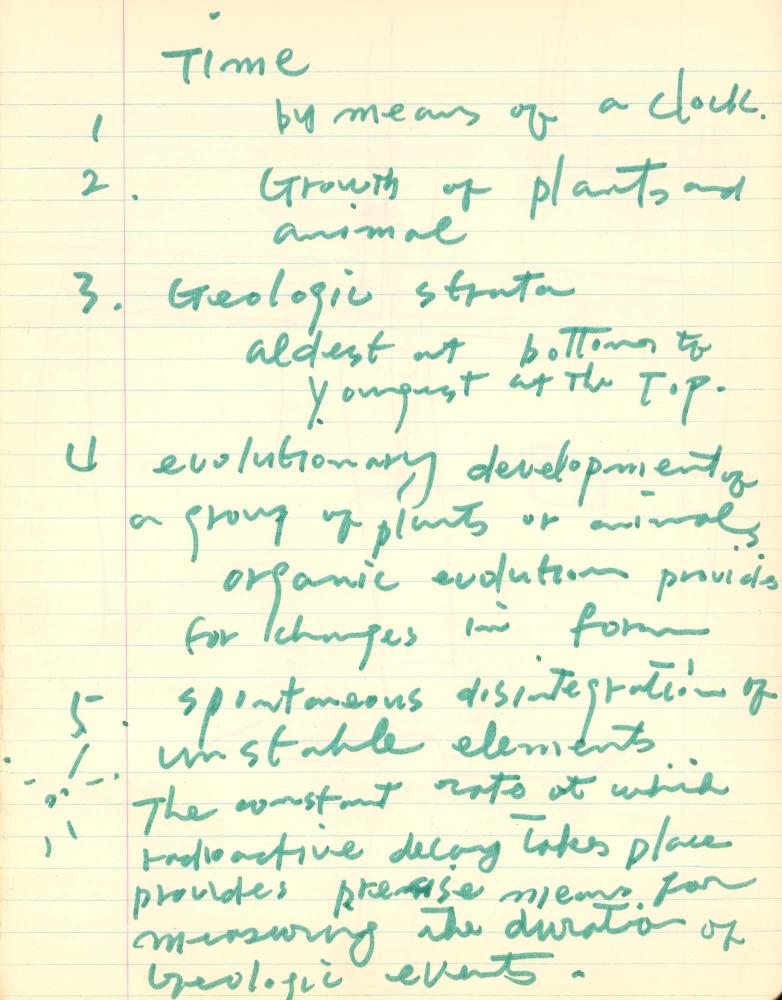 Time
1 by means of a clock.
2. Growth of plants and
animal
3. Geologic strata
oldest at bottom to
youngest at the Top.
4 evolutionary development of
a group of plants or animals,
organic evolution provids
for changes in form
5. spontaneous disintegration of
unstable elements
The constant rate at which
radioactive decay takes place
provides precise means for
measuring the duration of
Geologic events.